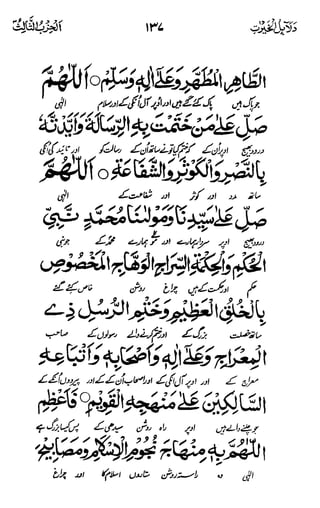 دلائل الخیرات ۱۳۷ الحزب الثالث
الطَّاهِرِ الْمُطَهَّرِ وَعَلٰٓى اٰلِهٖ وَسَلِّمْ ○ اَللّٰهُمَّ
جو پاک ہیں پاک کئے گئے ہیں اور اوپر آل انکی کے اور سلام الٰہی
صَلِّ عَلٰى مَنْ خَتَمْتَ بِهِ الرِّسَالَةَ وَاَيَّدْتَّهُ
درود بھیج اوپر اُن کے کہ ختم کیا تو نے ساتھ اُن کے رسالت کو اور تائید کی انکی
بِالنَّصْرِ وَالْكَوْثَرِ وَالشَّفَاعَةِ ○ اَللّٰهُمَّ
ساتھ مدد اور کوثر اور شفاعت کے الٰہی
صَلِّ عَلٰى سَيِّدِنَا وَمَوْلٰنَا مُحَمَّدٍ نَّبِيِّ
درود بھیج اوپر سردار ہمارے اور مولٰی ہمارے محمد کے جو نبی
الْحُكْمِ وَالْحِكْمَةِ السِّرَاجِ الْوَهَّاجِ الْمَخْصُوْصِ
حکم اور حکمت کے ہیں چراغ روشن خاص کئے گئے
بِالْخُلُقِ الْعَظِيْمِ وَخَتْمِ الرُّسُلِ ذِي
ساتھ خصلت بزرگ کے اور ختم کرنے والے رسولوں کے صاحب
الْمِعْرَاجِ وَعَلٰٓى اٰلِهٖ وَاَصْحَابِهٖ وَاَتْبَاعِهِ
معراج کے اور اوپر آل انکی کے اور اصحاب اُن کے کے اور پیروؤں انکے کے
السَّالِكِيْنَ عَلٰى مَنْهَجِهِ الْقَوِيْمِ ○ فَاَعْظِمِ
جو چلنے والے ہیں اوپر راہ روشن سیدھی کے پس بزرگ ہے
اللّٰهُمَّ بِهٖ مِنْهَاجَ نُجُوْمِ الْاِسْلَامِ وَمَصَابِيْحِ
الٰہی وہ راستہ روشن ستاروں اسلام کا اور چراغ